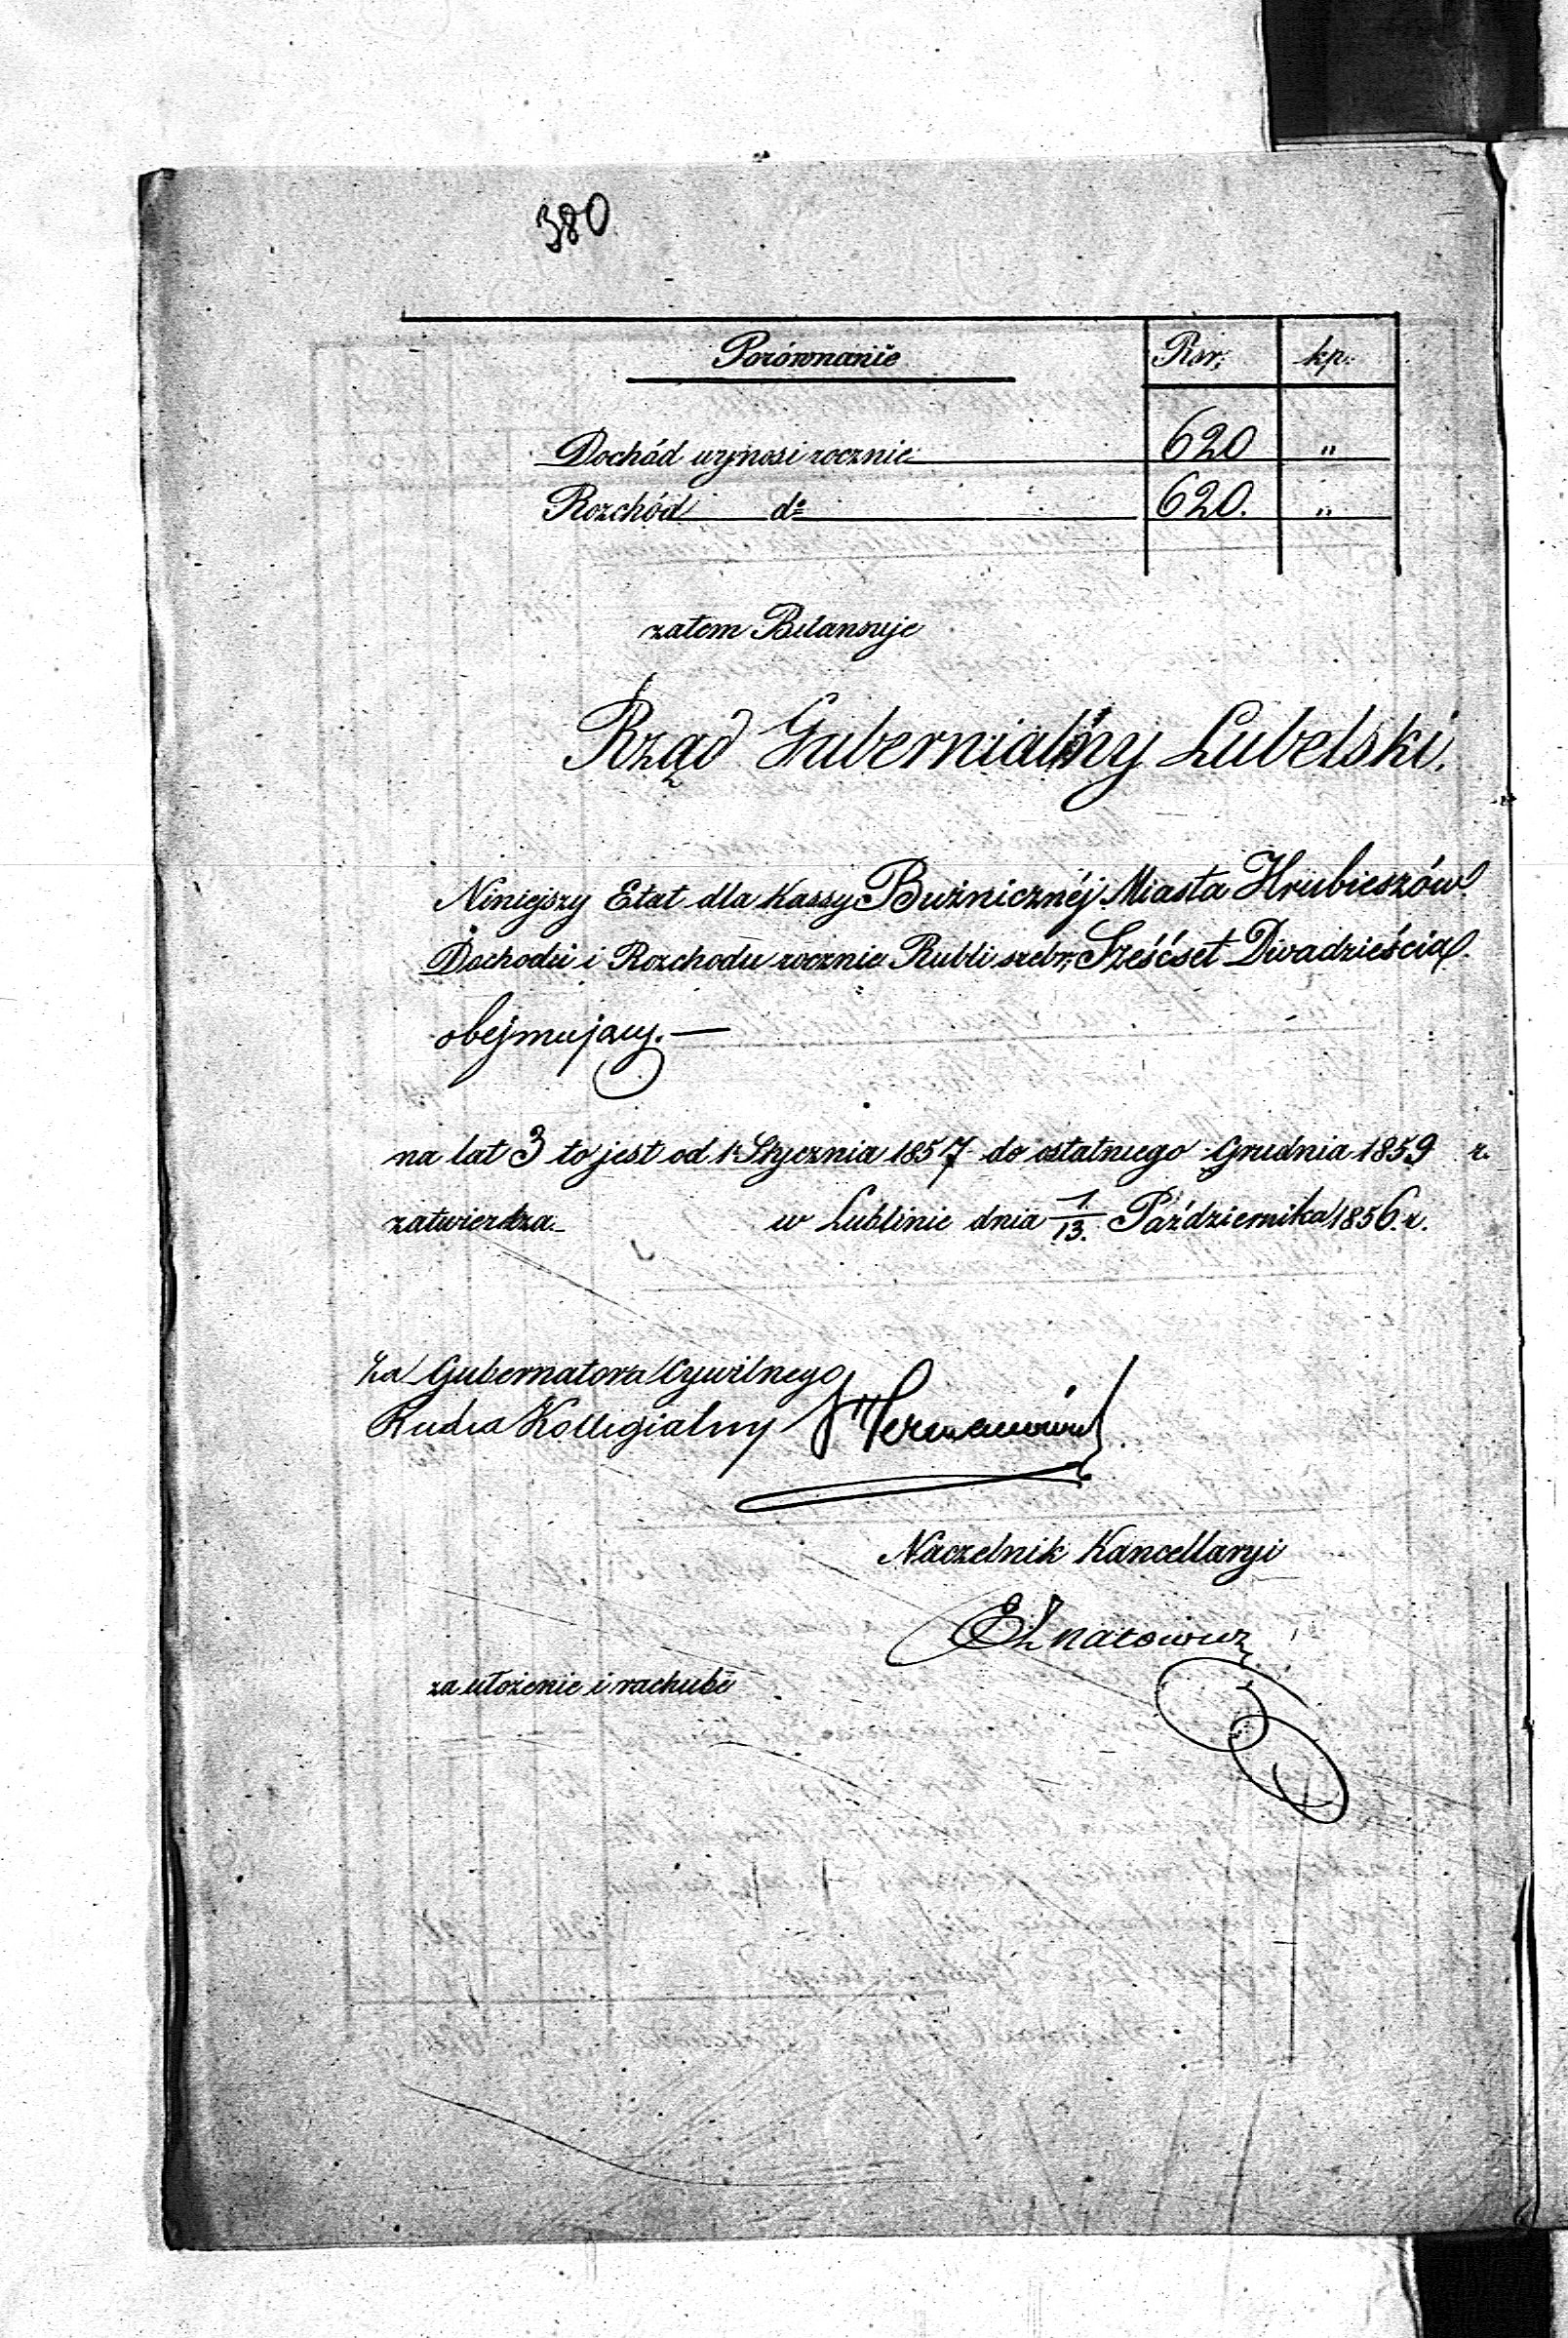 380
Porównanie Rsr; kp.
Dochód wynosi rocznie 620 "
Rozchód do 620. "
zatem Bilansuje
Rząd Gubernialny Lubelski.
Niniejszy Etat dla Kassy Bużnicznéj Miasta Hrubieszów
Dochodu i Rozchodu rocznie Rubli srebr; Sześćset Dwadzieścia
obejmujący. —
na lat 3 to jest od 1 Stycznia 1857 do ostatniego Grudnia 1859 r.
zatwierdza w Lublinie dnia 1/13. Października 1856. r.
za Gubernatora Cywilnego
Radca Kollegialny
Naczelnik Kancellaryi
za ułożenie i rachubę